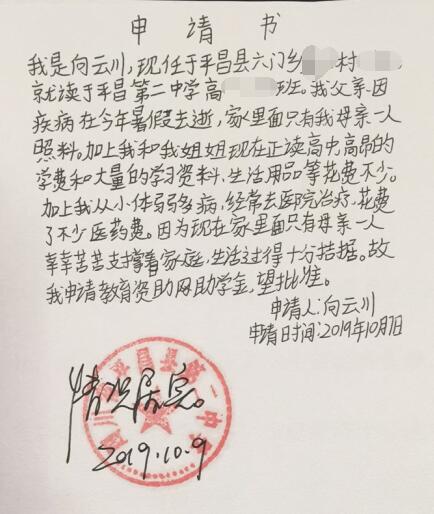 申请书
我是向云川，现任于平昌县六门乡 村
就读于平昌第二中学高 班。我父亲因
疾病在今年暑假去逝，家里面只有我母亲一人
照料。加上我和我姐姐现在正读高中高昂的
学费和大量的学习资料、生活用品等花费不少。
加上我从小体弱多病，经常去医院治疗，花费
了不少医药费。因为现在家里面只有母亲一人
辛辛苦苦支撑着家庭，生活过得十分拮据。故
我申请教育资助网助学金，望批准。
申请人：向云川
申请时间：2019年10月7日
情况属实。
2019.10.9